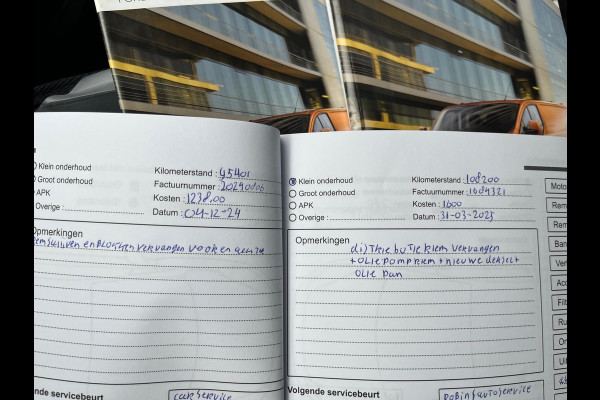 Klein onderhoud
Groot onderhoud
APK
Overige :
Kilometerstand : 95401
Factuurnummer :
Kosten : 1238,00
Datum : 04-12-24
Opmerkingen
remschijven en blokken vervangen voor en
Volgende servicebeurt
carservice
Klein onderhoud
Groot onderhoud
APK
Overige :
Kilometerstand : 108200
Factuurnummer : 1604321
Kosten : 1600
Datum : 31-03-2025
Opmerkingen
distributieriem vervangen
+ oliepompriem + nieuwe deksel +
olie pan
Volgende servicebeurt
Robinsautoservice
Moto
Rem
Rem
Ban
Ver
Acc
Filt
Ru
On
Uit